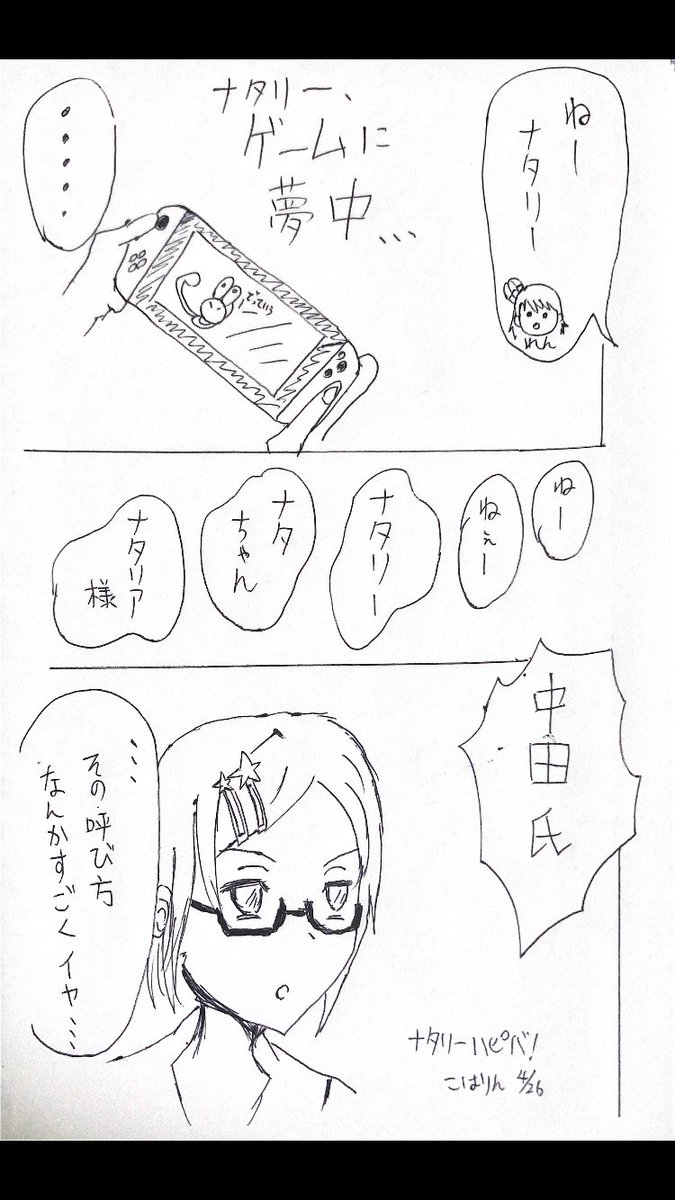 ねー
ナタリー
れん
ナタリー、
ゲームに
夢中...
・・・・・
でっていう
ねー
ねぇー
ナタリー
ナタ
ちゃん
ナタリア
様
中田氏
...
その呼び方
なんかすごくイヤ...
ナタリーハピバ!
こはりん 4/26